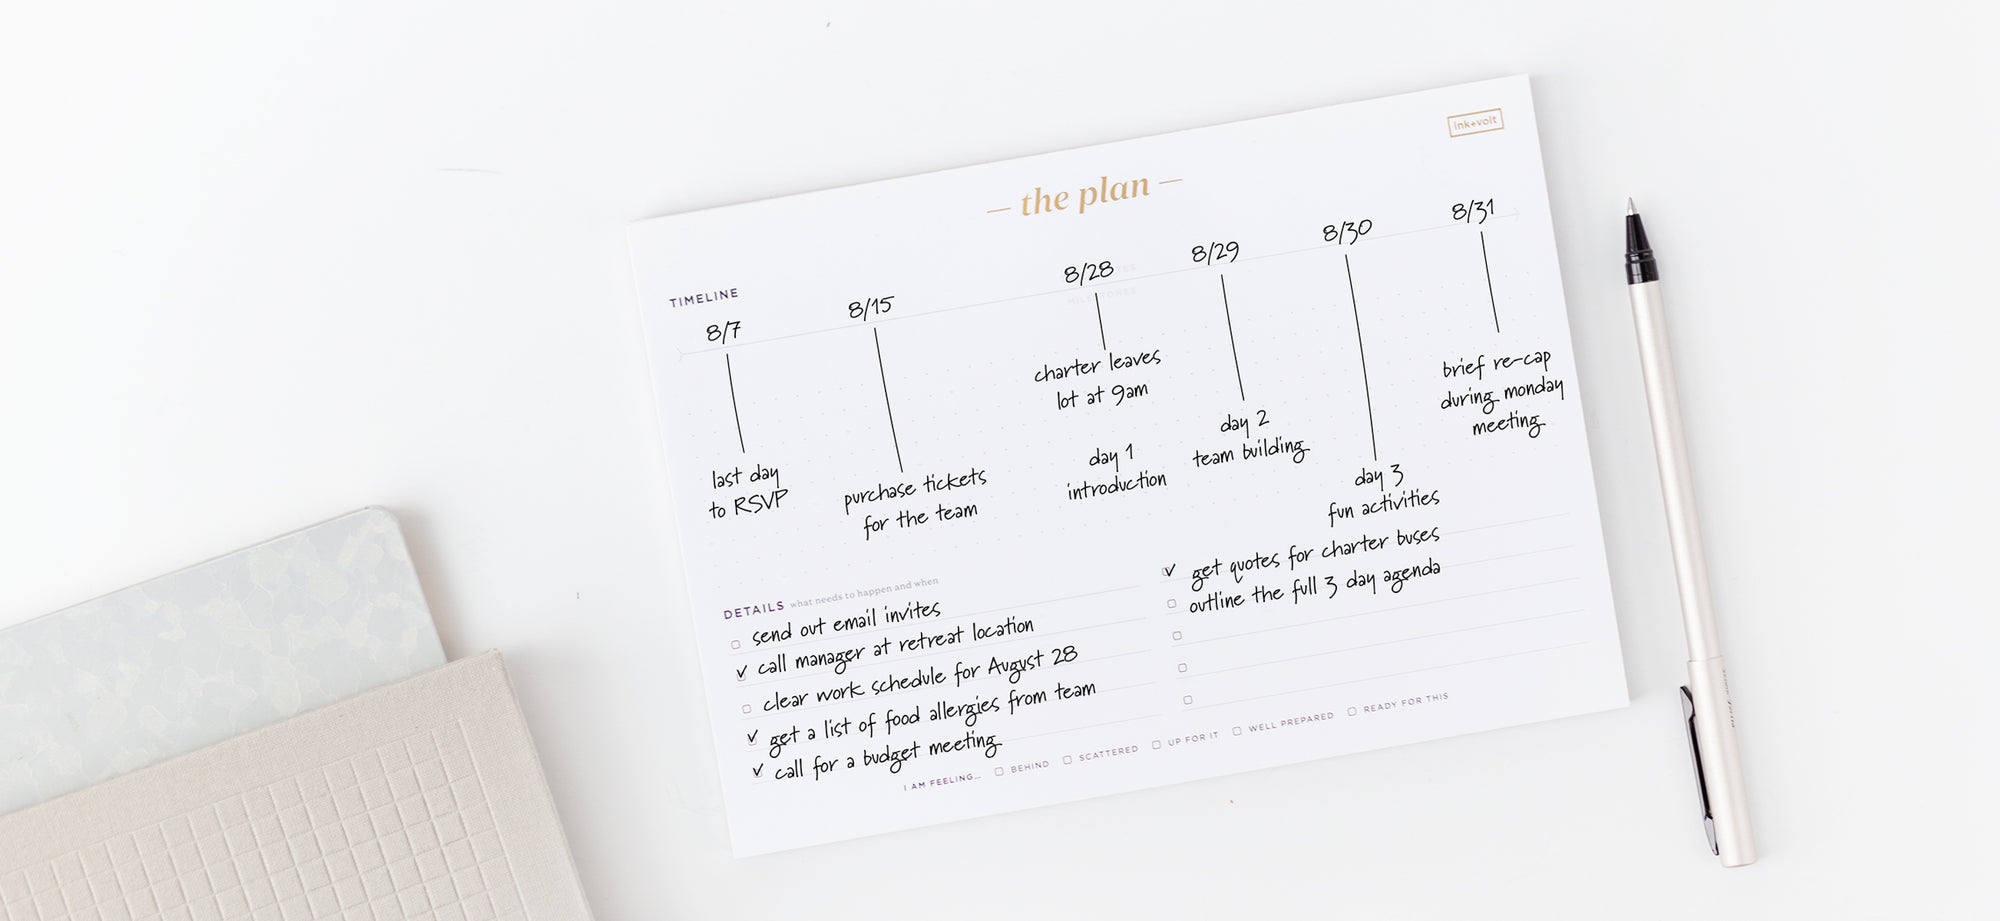 ink+volt
— the plan —
TIMELINE
8/7
8/15
8/28
8/29
8/30
8/31
last day
to RSVP
purchase tickets
for the team
charter leaves
lot at 9am
day 1
introduction
day 2
team building
day 3
fun activities
brief re-cap
during monday
meeting
DETAILS what needs to happen and when
send out email invites
call manager at retreat location
clear work schedule for August 28
get a list of food allergies from team
call for a budget meeting
get quotes for charter buses
outline the full 3 day agenda
I AM FEELING... BEHIND SCATTERED UP FOR IT WELL PREPARED READY FOR THIS